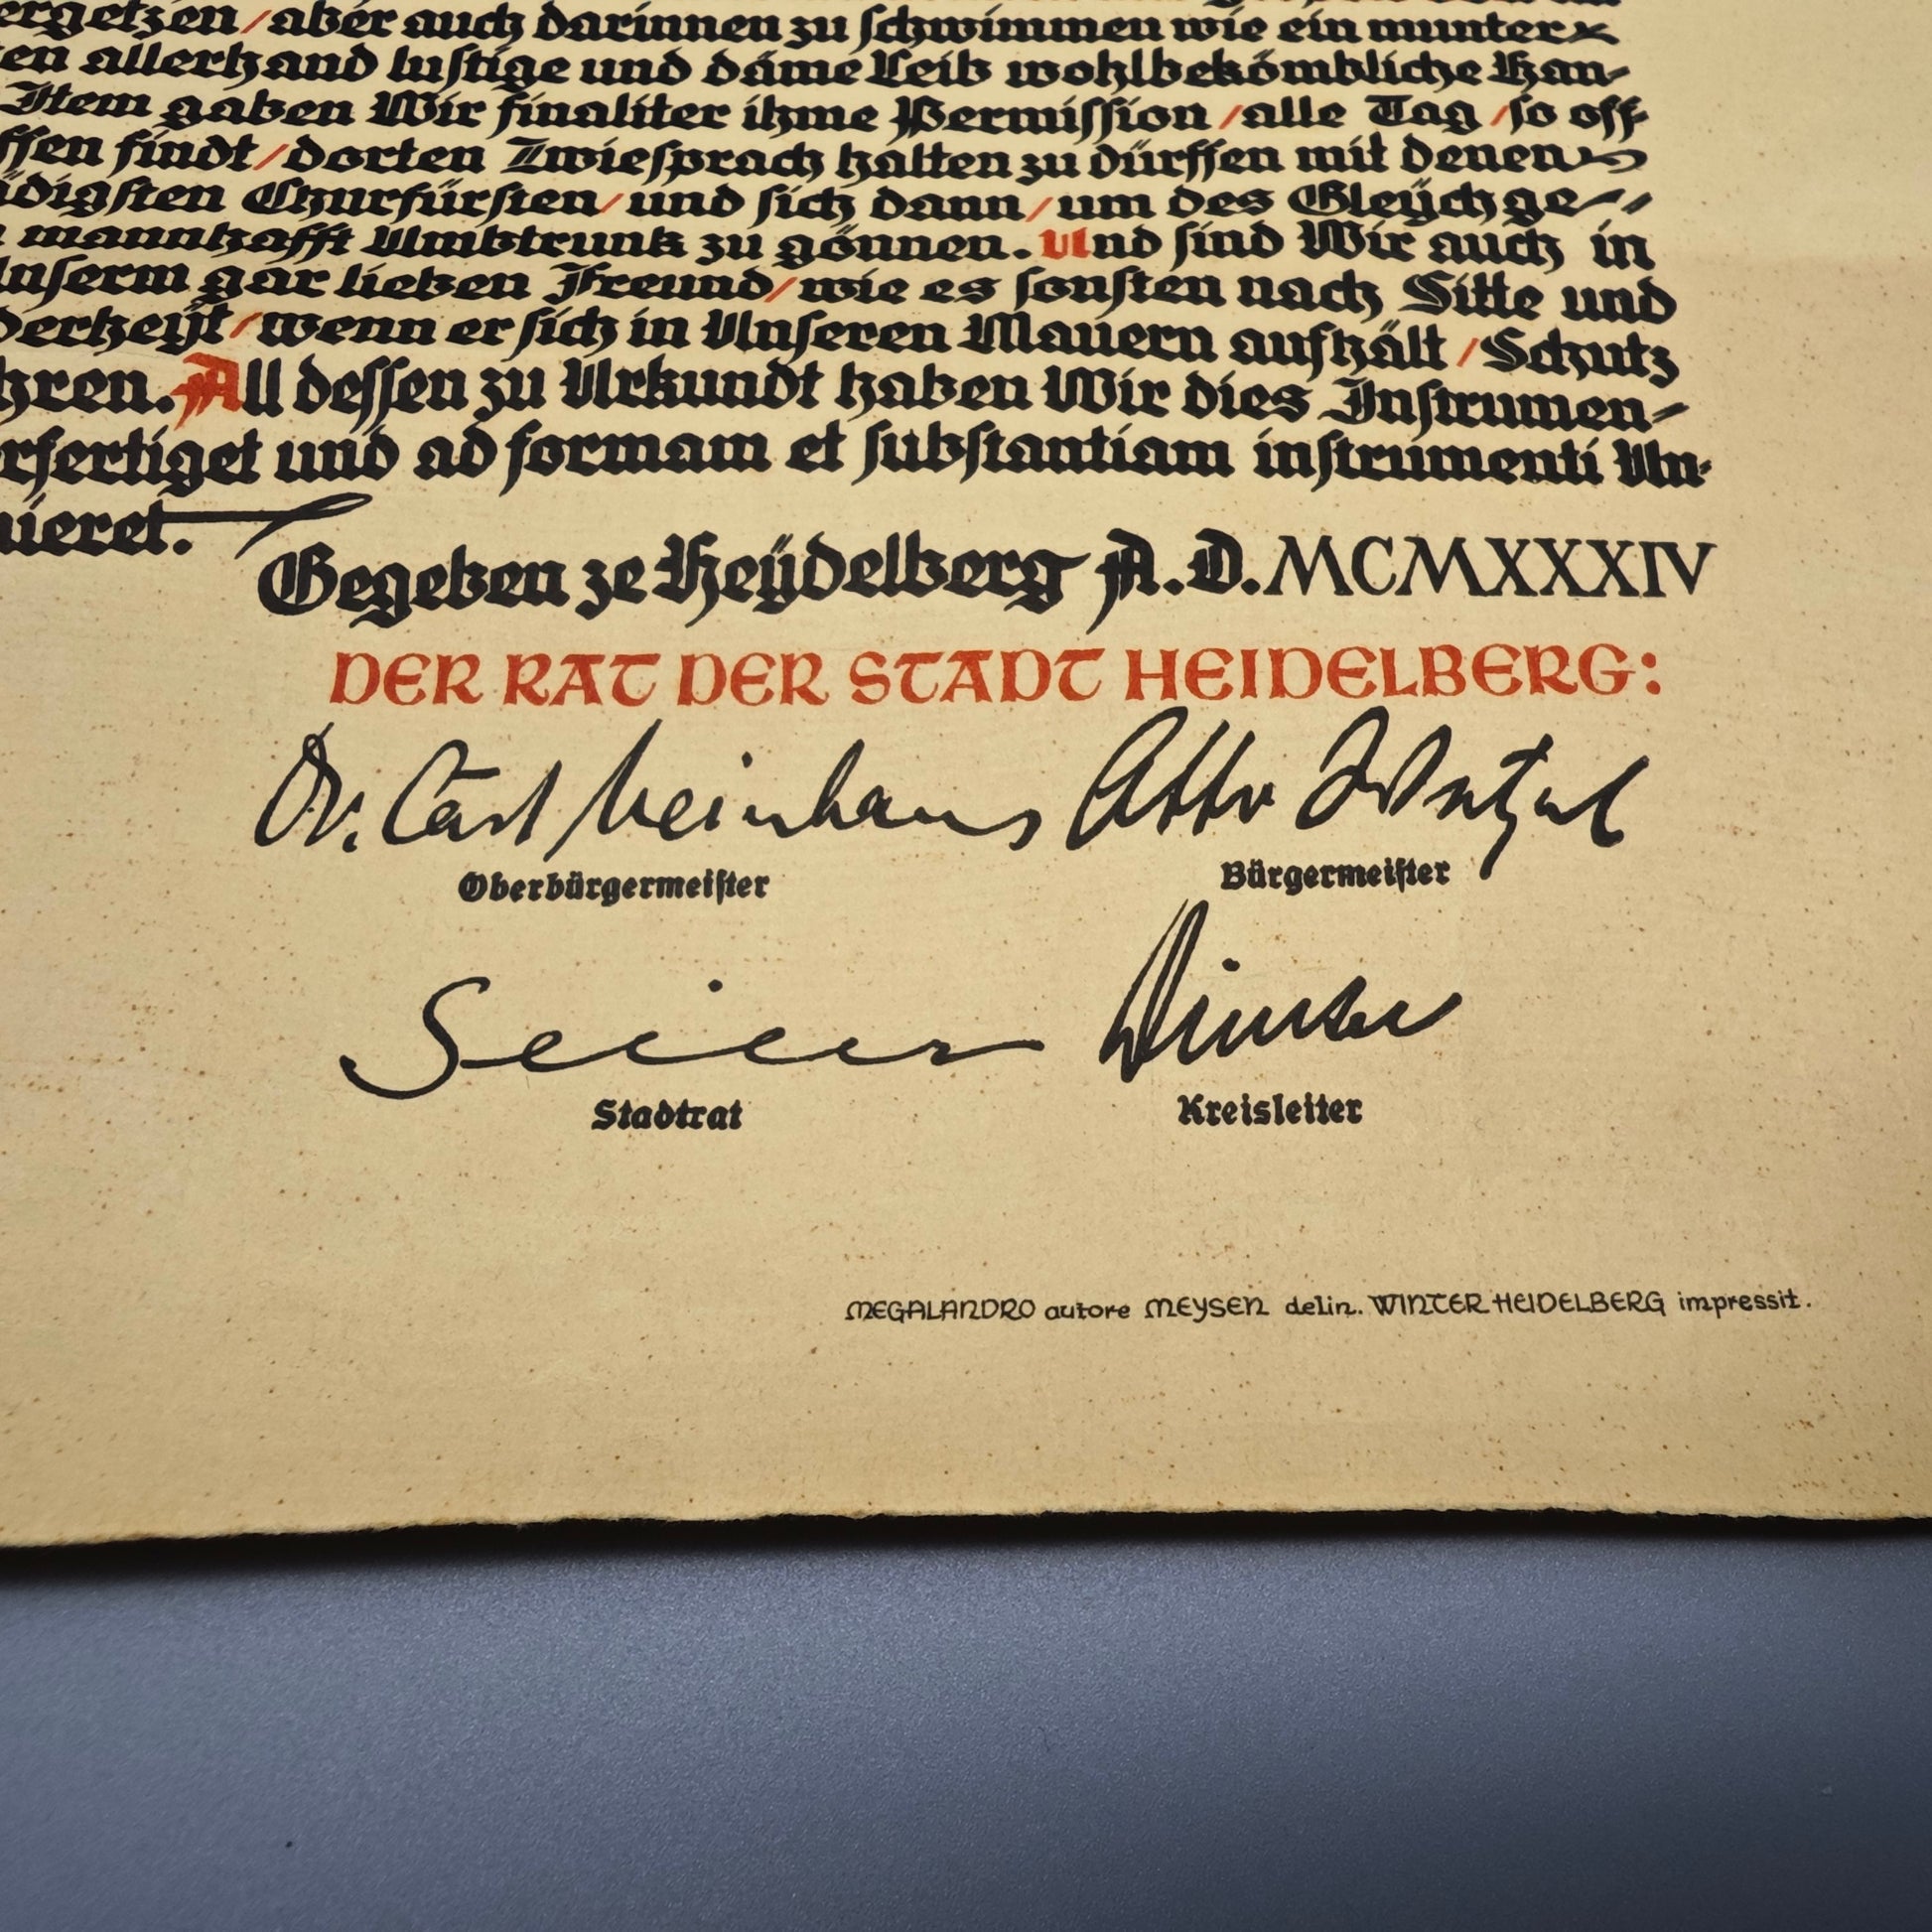 ergetzen / aber auch darinnen zu ſchwimmen wie ein munter
en allerhand luſtige und däme Leib wohlbekömbliche Han-
Item gaben Wir finaliter ihme Permiſſion / alle Tag / ſo off-
ffen findt / dorten Zwieſprach halten zu dürffen mit denen
ädigſten Churfürſten / und ſich dann / um des Gleÿch ge-
mannhafft Umbtrunk zu gönnen. Und ſind Wir auch in
Unſerm gar lieben Freund / wie es ſonſten nach Sitte und
derheÿt / wenn er ſich in Unſeren Mauern aufhält / Schutz
hren. All deſſen zu Urkundt haben Wir dies Inſtrumen-
rfertiget und ad formam et ſubſtantiam inſtrumenti Un-
uieret.
Gegeben ze Heÿdelberg A. D. MCMXXXIV
DER RAT DER STADT HEIDELBERG:
Dr. Carl Neinhaus Otto Wetzel
Oberbürgermeiſter Bürgermeiſter
Seiler Dinkel
Stadtrat Kreisleiter
MEGALANDRO autore MEYSEN delin. WINTER HEIDELBERG impressit.